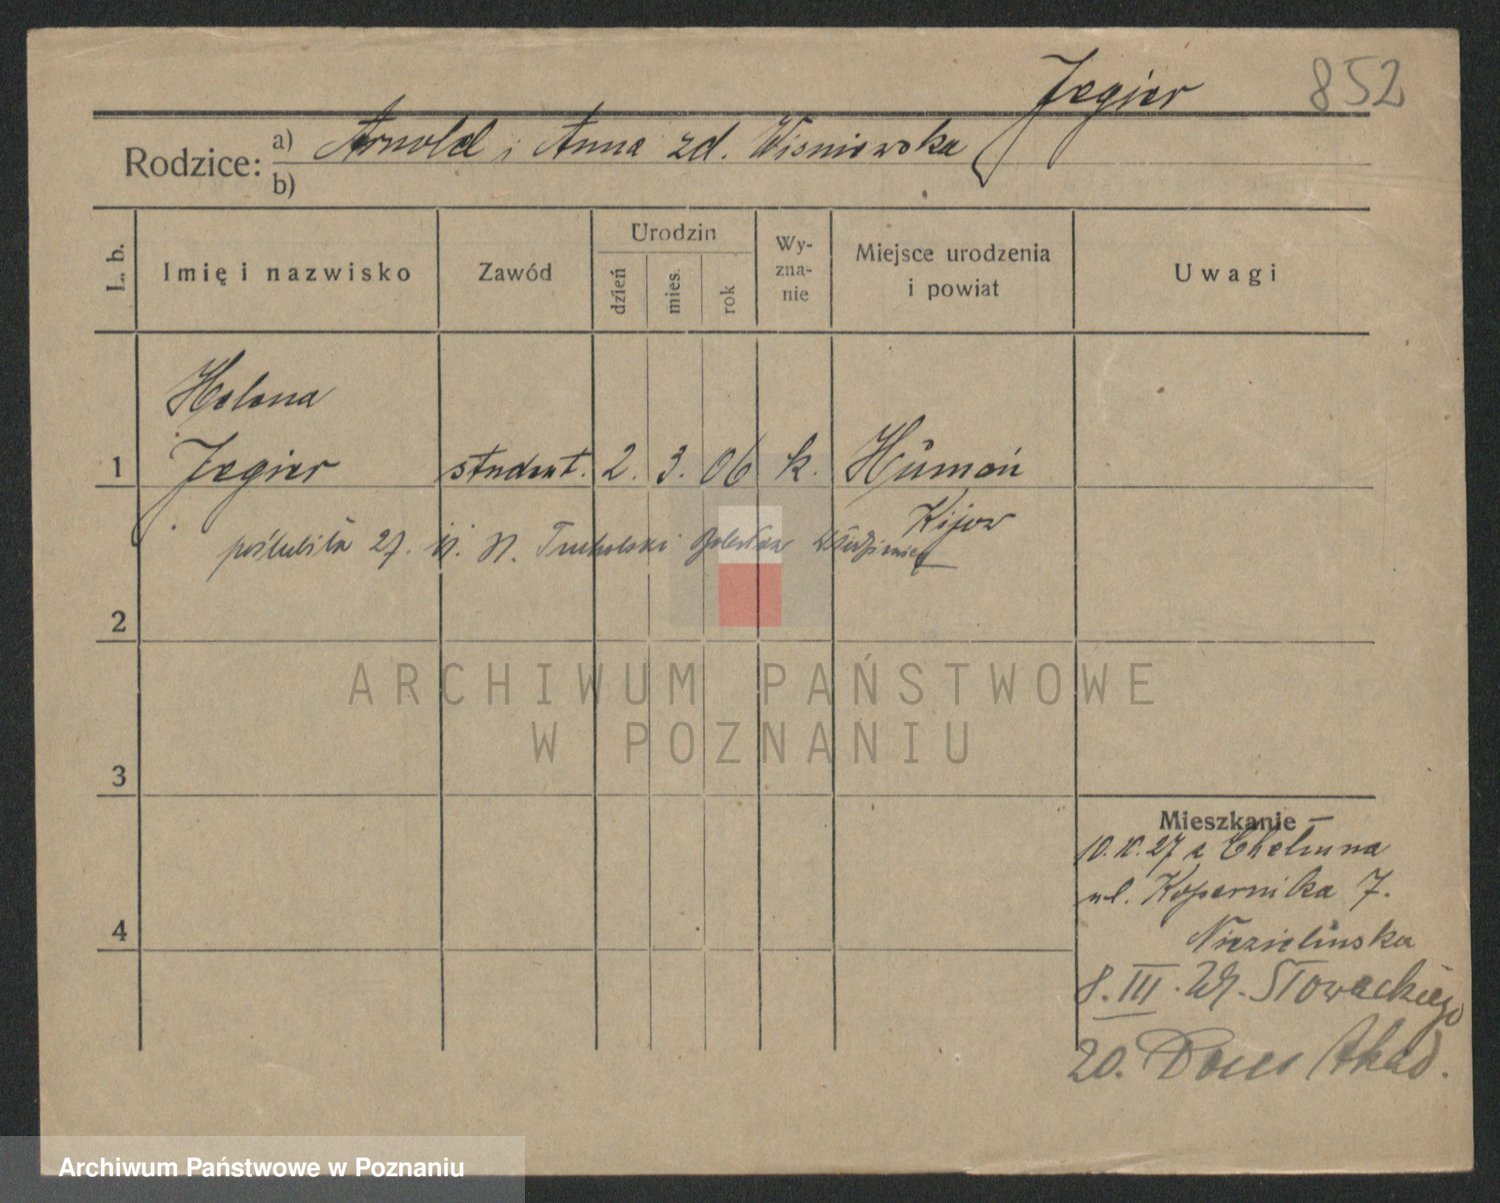 Jegier 852
Rodzice: a) Arnold i Anna zd. Wisniewska
b)
L. b. Imię i nazwisko Zawód Urodzin dzień mies. rok Wy-zna-nie Miejsce urodzenia i powiat Uwagi
Helena
1 Jegier student. 2. 3. 06 k. Humań
Kijow
poślubiła 27. Tucholski Włodzimierz
2
ARCHIWUM PAŃSTWOWE
W POZNANIU
3
Mieszkanie
10.X.27 z Chełmna
4 ul. Kopernika 7.
Niezielinska
8.III. Słowackiego
20. Dom Akad.
Archiwum Państwowe w Poznaniu